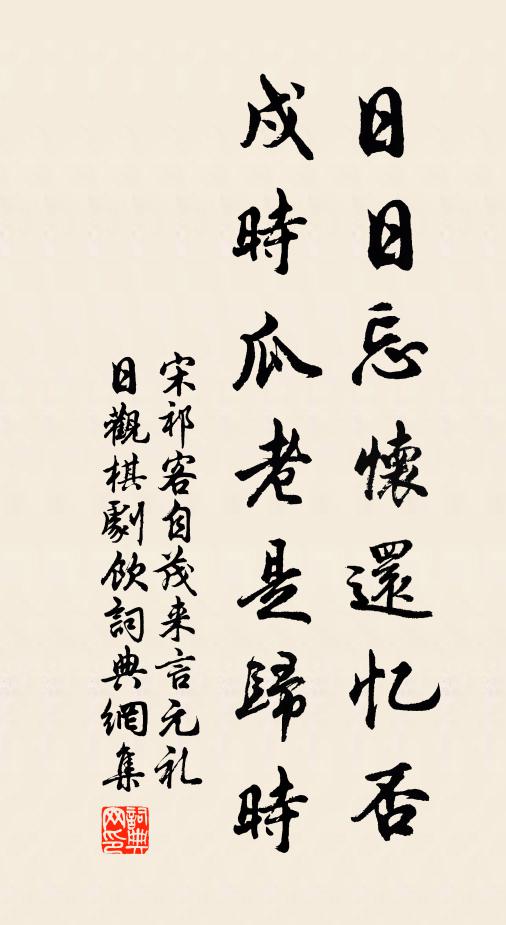 日日忘懷還忆否
戍時瓜老是歸時
宋祁客自茂来言元礼
日觀棋劇飲詞典網集
詞典
网印